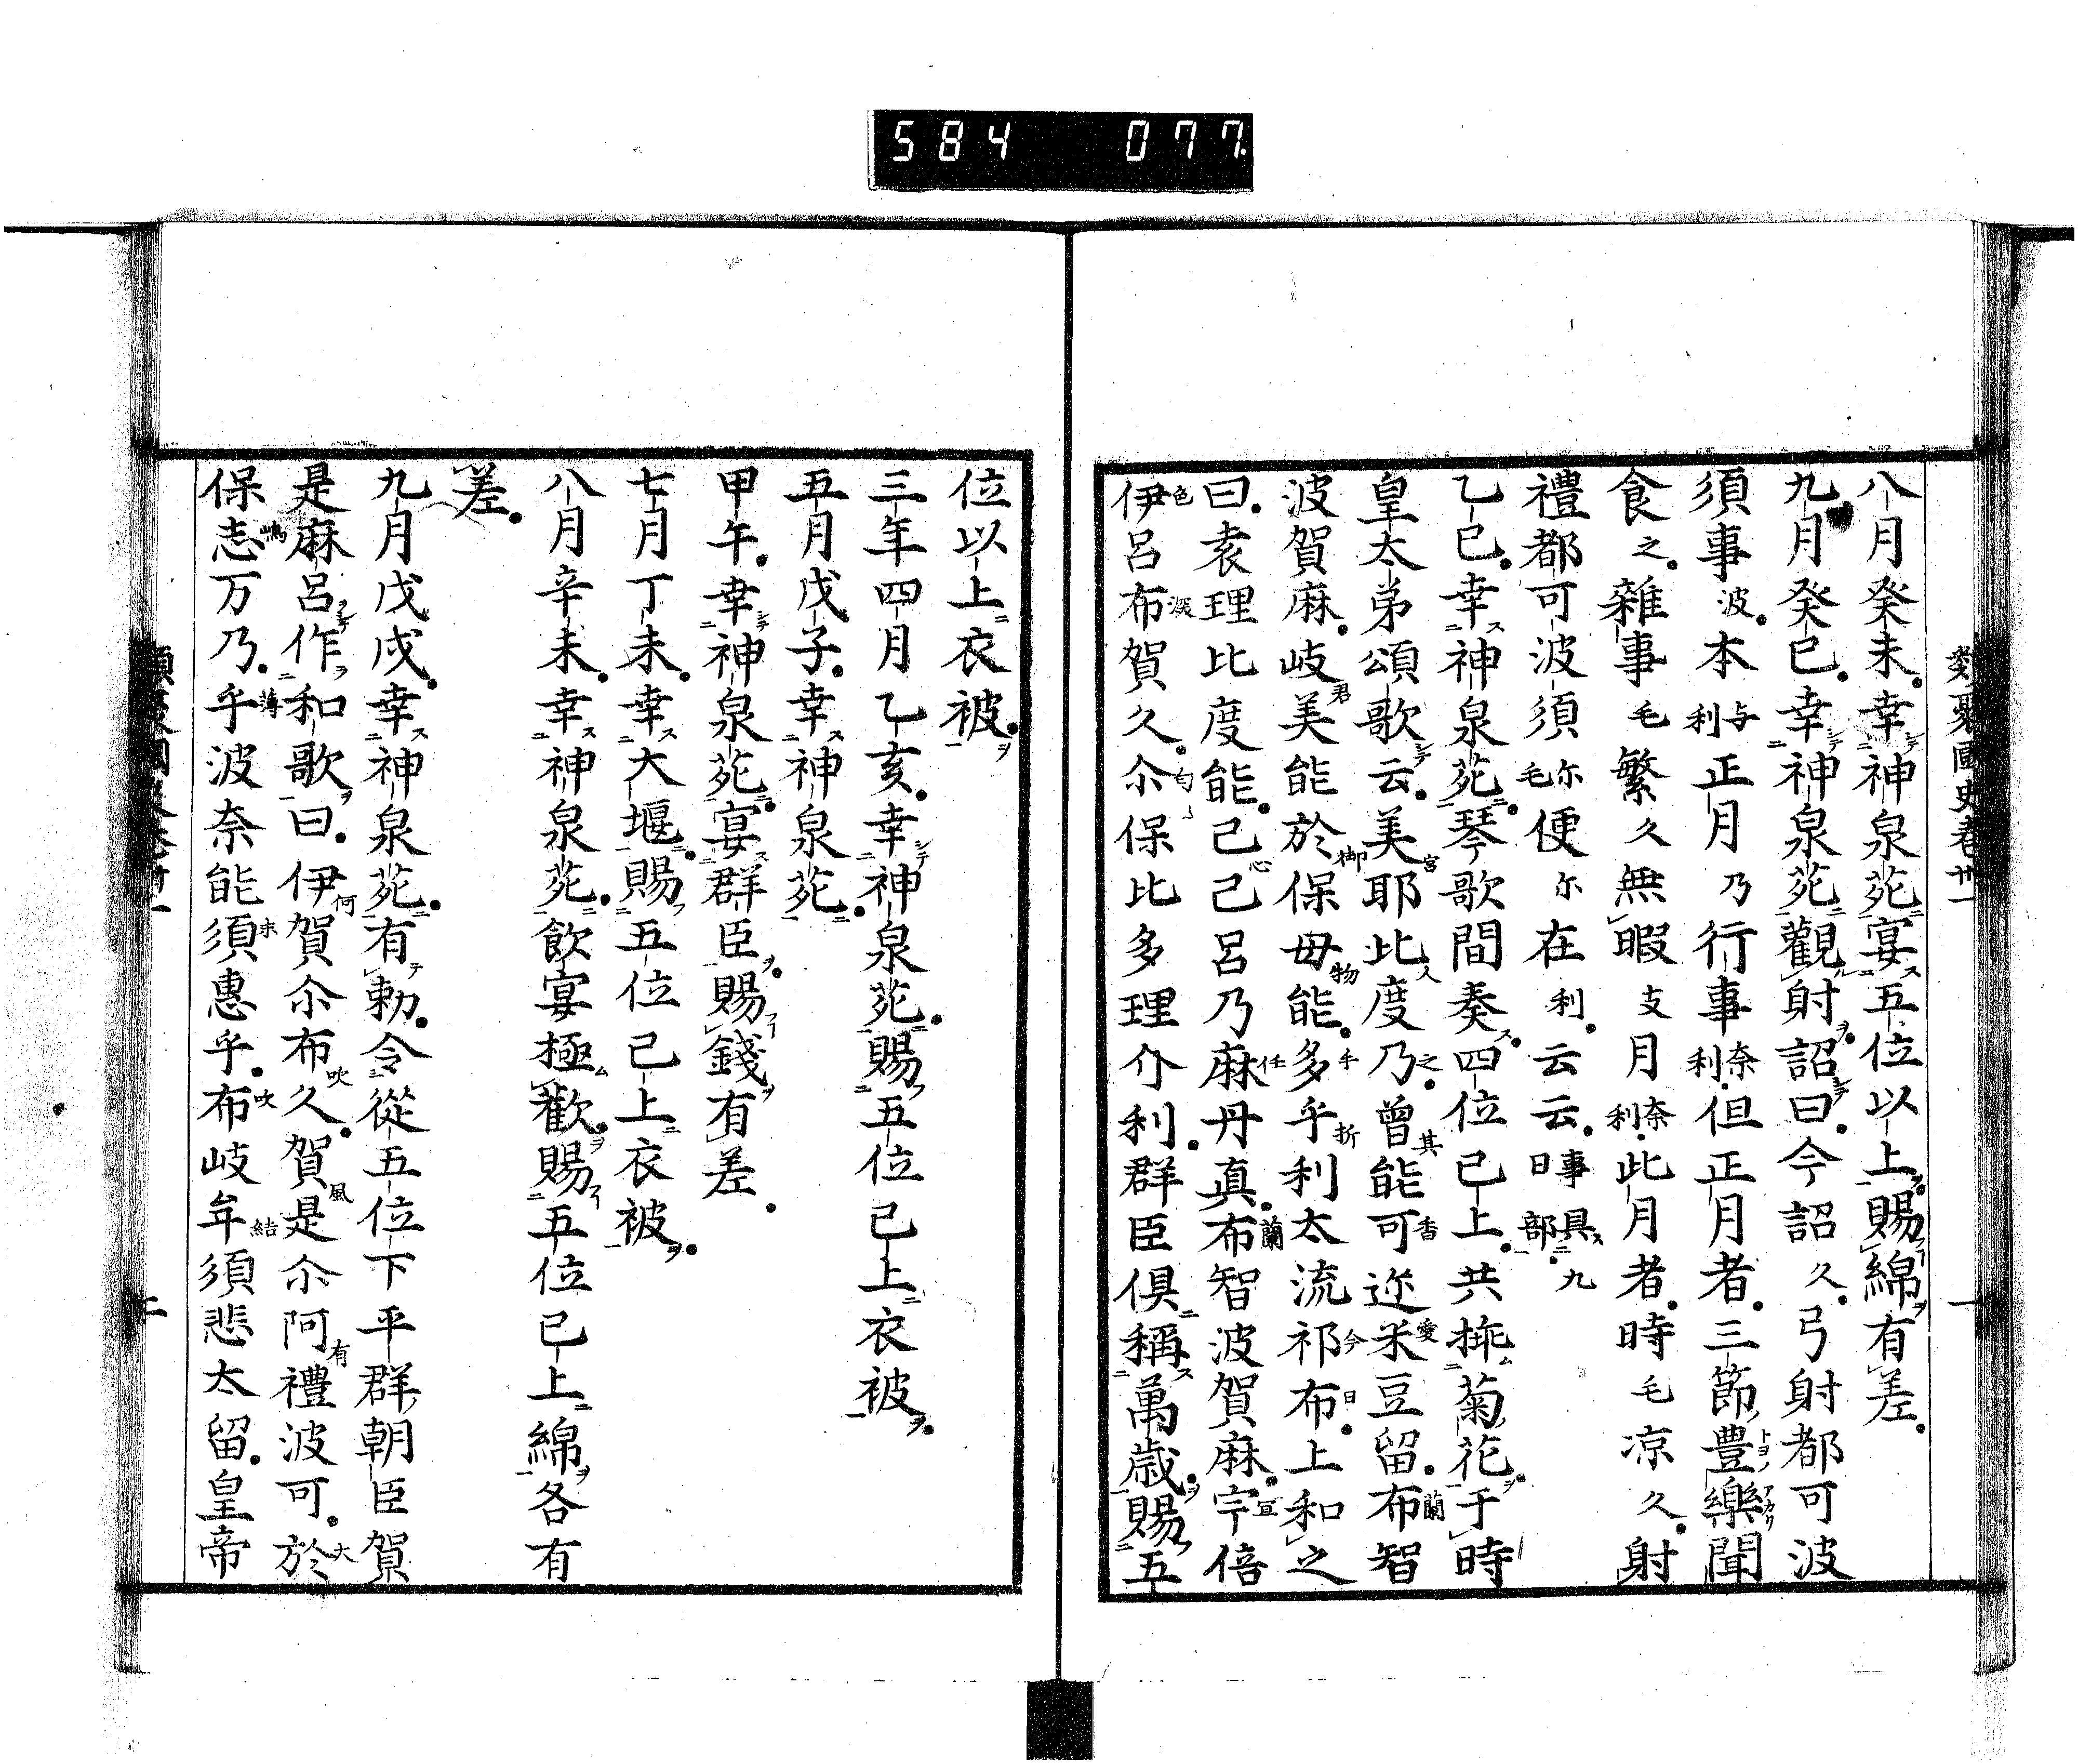 584 077
類聚國史卷卅一 一
八月癸未幸神泉苑宴五位以上賜綿有差
九月癸巳幸神泉苑觀射詔曰今詔久弓射都可波
須事波本与利正月乃行事奈利但正月者三節豊樂聞
食之雜事毛繁久無暇支月奈利此月者時毛凉久射
禮都可波須尓毛便尓在利云云事具九日部
乙巳幸神泉苑琴歌間奏四位已上共挿菊花于時
皇太弟頌歌云美耶比度乃曾能可邇米豆留布智
波賀麻岐美能於保毋能多乎利太流祁布上和之
曰袁理比度能己己呂乃麻丹真布智波賀麻宇倍
伊呂布賀久尓保比多理介利群臣倶稱萬歳賜五
位以上衣被
三年四月乙亥幸神泉苑賜五位已上衣被
五月戊子幸神泉苑
甲午幸神泉苑宴群臣賜錢有差
七月丁未幸大堰賜五位已上衣被
八月辛未幸神泉苑飲宴極歡賜五位已上綿各有
差
九月戊戌幸神泉苑有勅令從五位下平群朝臣賀
是麻呂作和歌曰伊賀尓布久賀是尓阿禮波可於
保志万乃乎波奈能須惠乎布岐牟須悲太留皇帝
類聚國史卷卅一 二